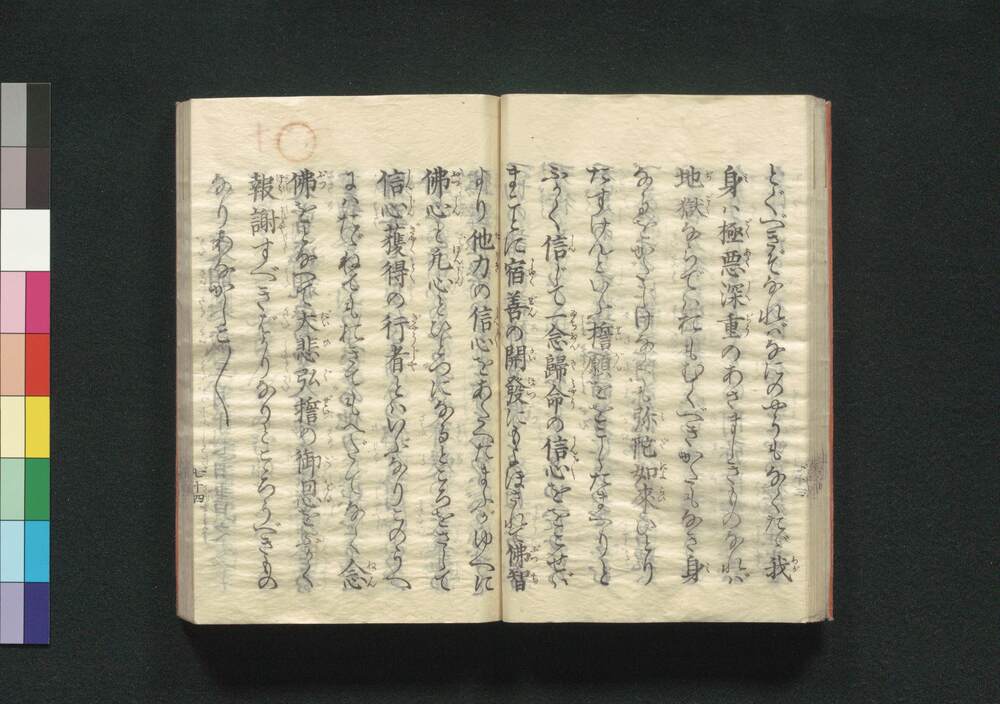 とくべきぞなればなにのやうもなくたゞ我
身は極悪深重のあさましきものなれば
地獄ならではおもむくべきかたもなき身
なるをかたじけなくも弥陀如來ひとり
たすけんといふ誓願ををこしたまへりと
ふかく信じて一念歸命の信心ををこせば
まことに宿善の開發にもよほされて佛智
より他力の信心をあたへたまふがゆへに
佛心と凡心とひとつになるところをさして
信心獲得の行者とはいふなりこのうへ
にはたゞねてもおきてもへだてなく念
佛をとなへて大悲弘誓の御恩をふかく
報謝すべきばかりなりとこころうべきもの
なりあなかしこ〱
七十四